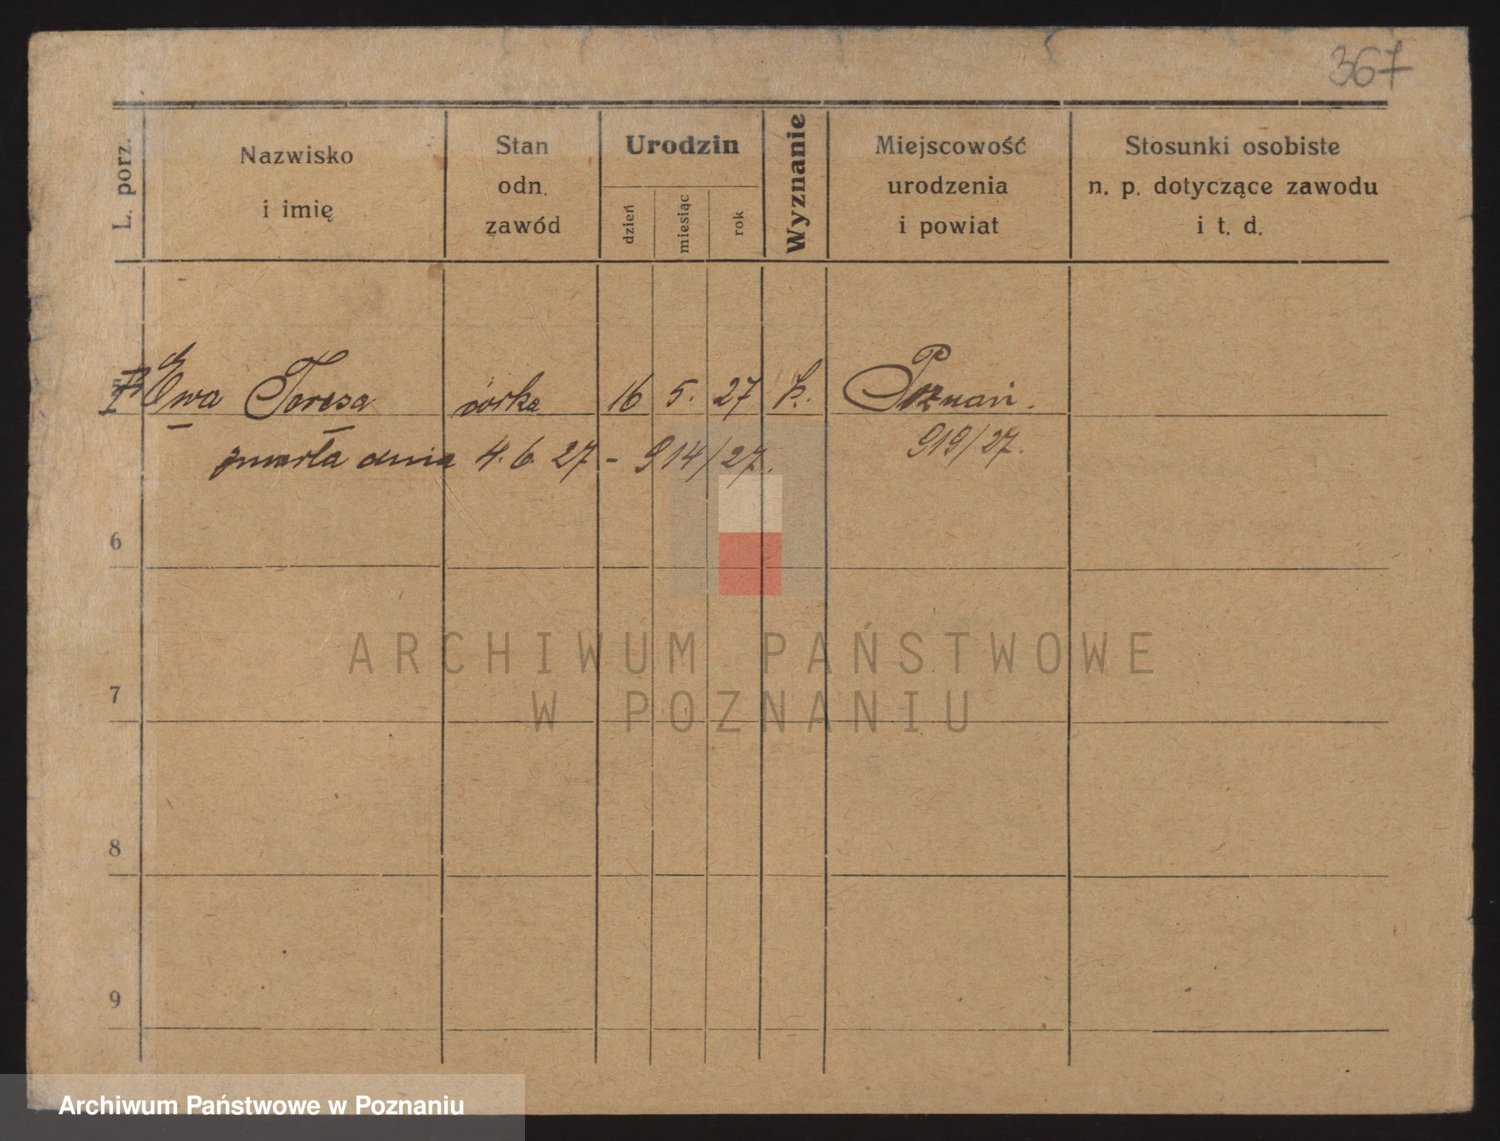 367
L. porz.
Nazwisko
i imię
Stan
odn.
zawód
Urodzin
dzień
miesiąc
rok
Wyznanie
Miejscowość
urodzenia
i powiat
Stosunki osobiste
n. p. dotyczące zawodu
i t. d.
Ewa Teresa córka 16 5. 27 k. Poznań.
zmarła dnia 4. 6. 27 - 914/27. 919/27.
6
7
8
9
ARCHIWUM PAŃSTWOWE
W POZNANIU
Archiwum Państwowe w Poznaniu